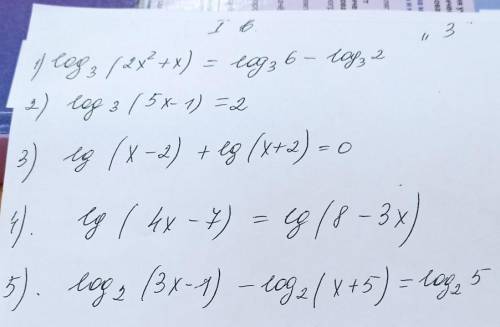 I в. „ 3
1) log₃ (2x² + x) = log₃ 6 - log₃ 2
2) log₃ (5x - 1) = 2
3) lg (x - 2) + lg (x + 2) = 0
4). lg (4x - 7) = lg (8 - 3x)
5). log₂ (3x - 1) - log₂ (x + 5) = log₂ 5